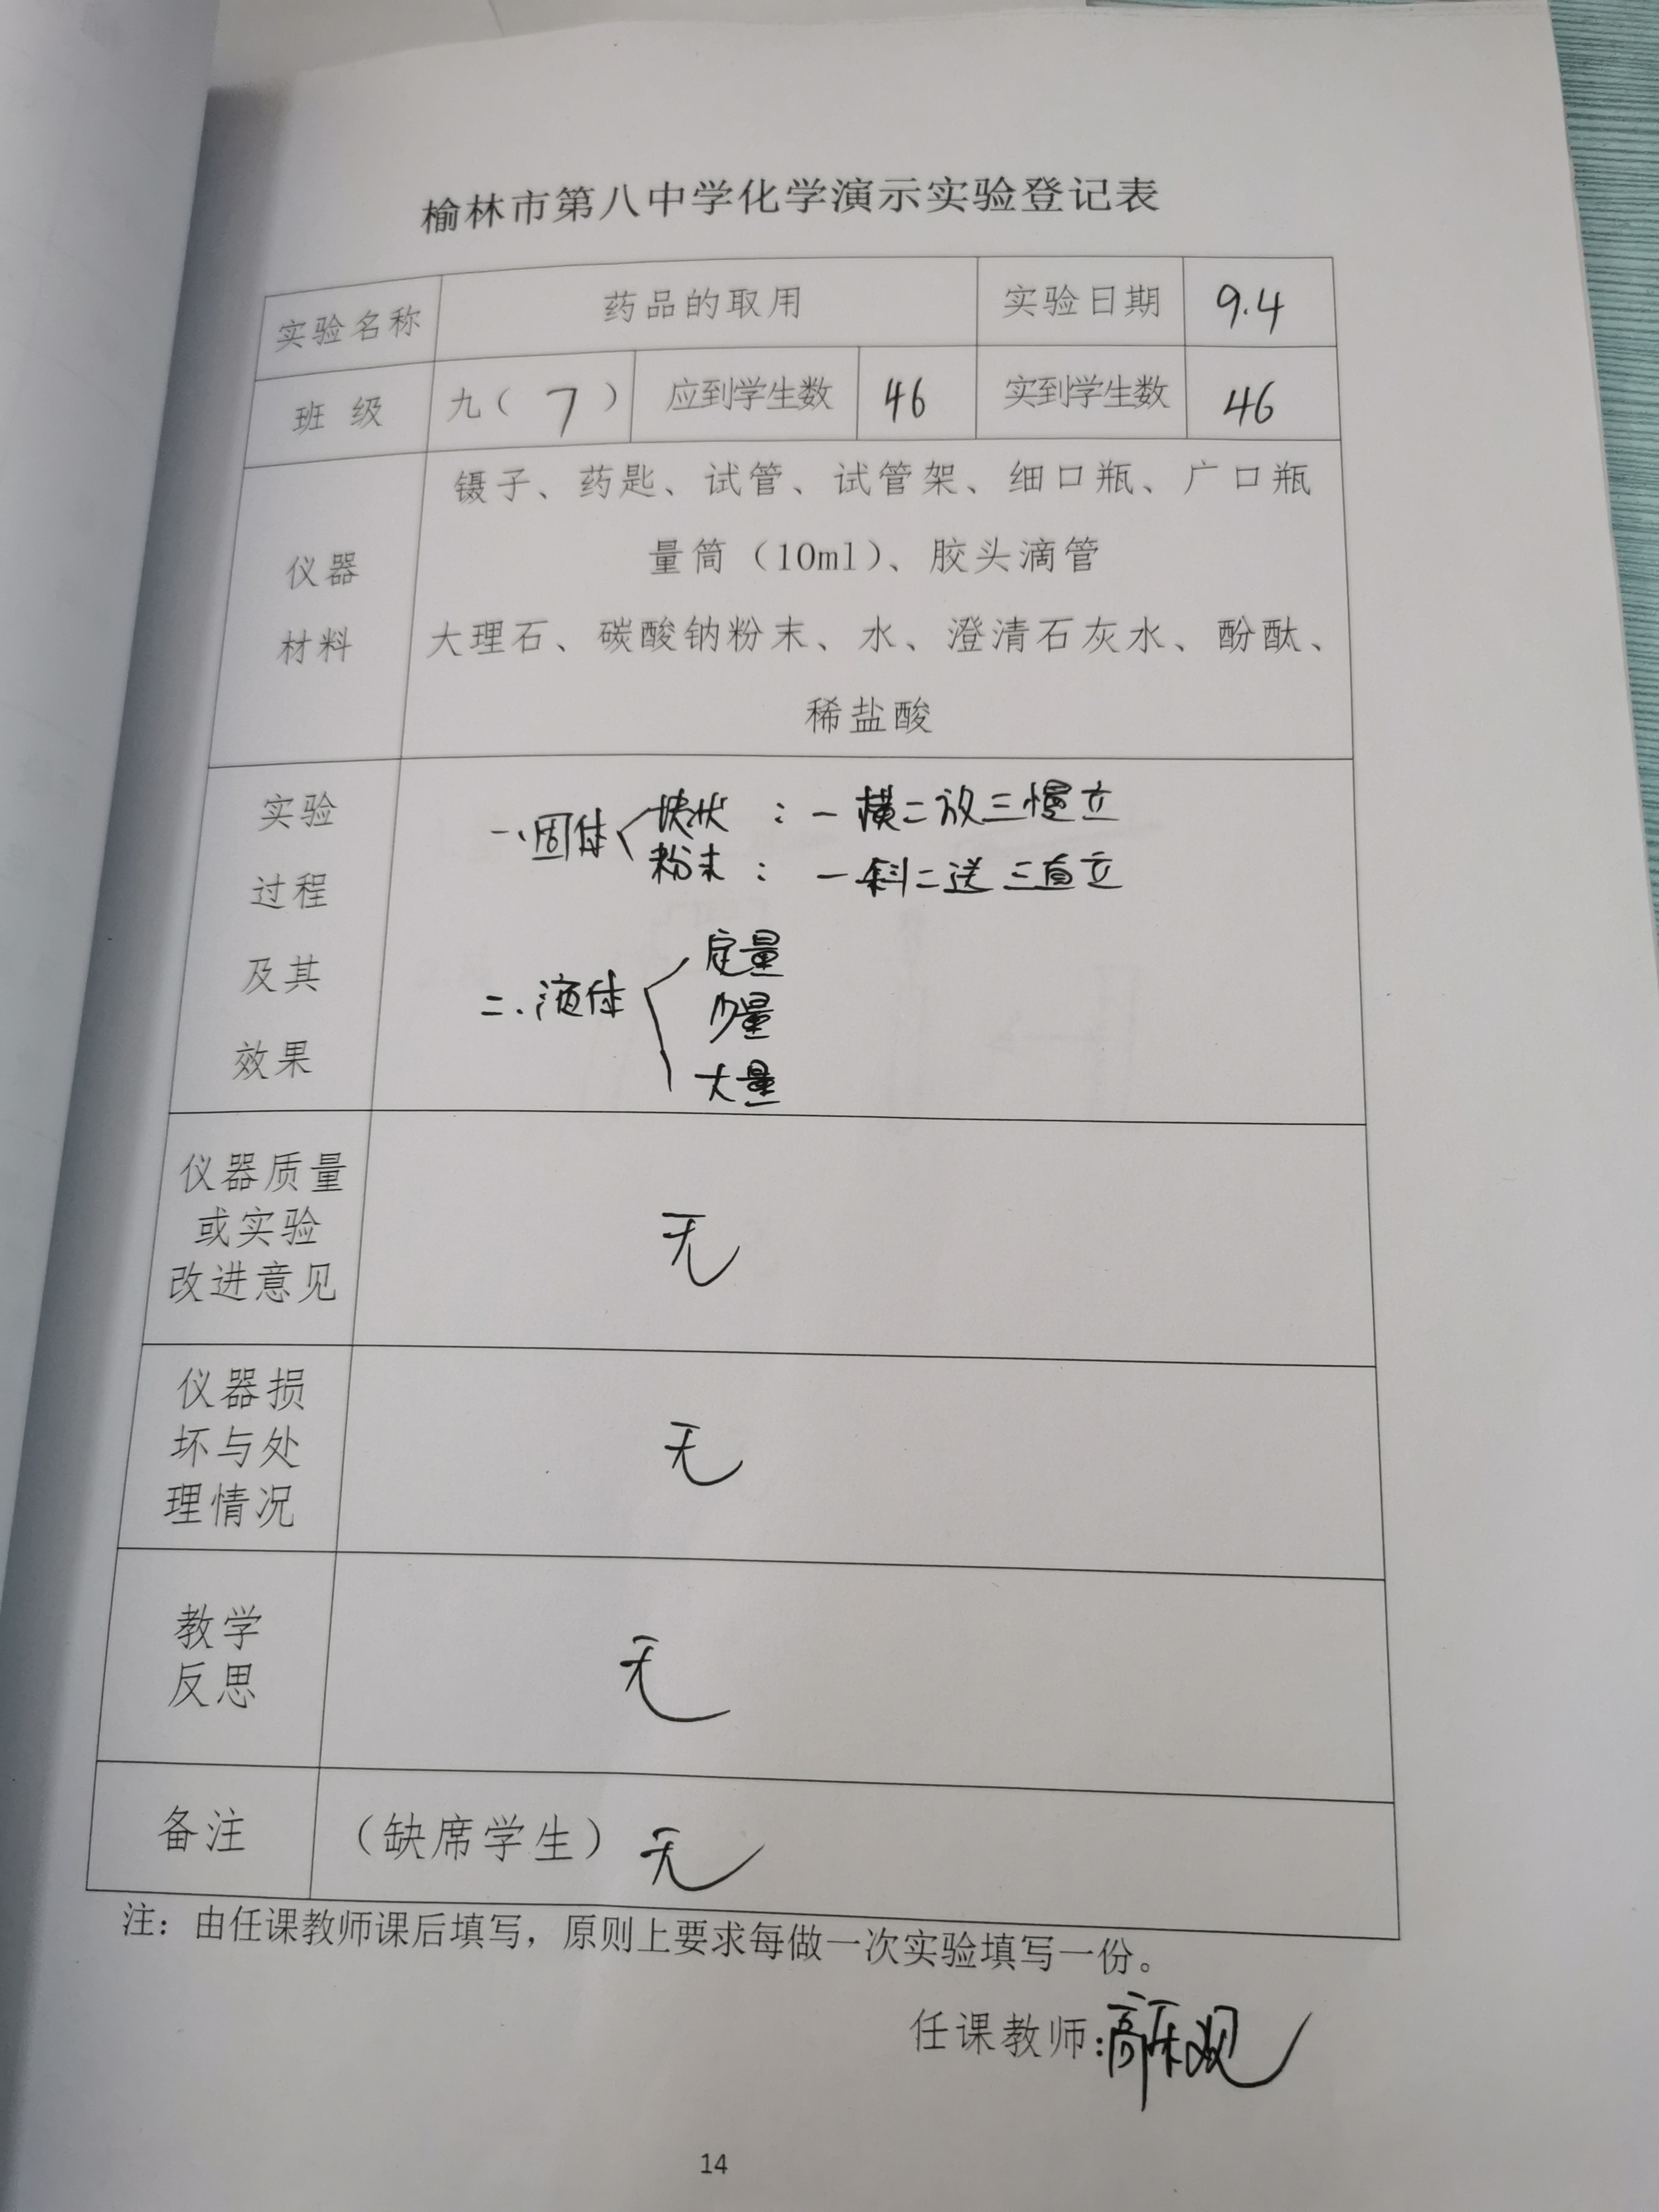 榆林市第八中学化学演示实验登记表
实验名称 药品的取用 实验日期 9.4
班 级 九（ 7 ） 应到学生数 46 实到学生数 46
仪器
材料
镊子、药匙、试管、试管架、细口瓶、广口瓶
量筒（10ml）、胶头滴管
大理石、碳酸钠粉末、水、澄清石灰水、酚酞、
稀盐酸
实验
过程
及其
效果
一、固体 块状 ：一横二放三慢立
粉末 ：一斜二送三直立
二、液体 定量
少量
大量
仪器质量
或实验
改进意见
无
仪器损
坏与处
理情况
无
教学
反思
无
备注 （缺席学生）无
注：由任课教师课后填写，原则上要求每做一次实验填写一份。
任课教师:高乐观
14